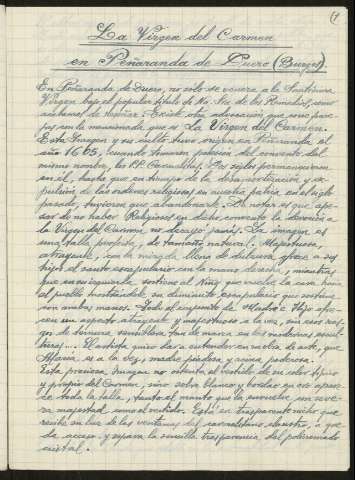 (1
La Virgen del Carmen
en Peñaranda de Duero (Burgos)
En Peñaranda de Duero, no sólo se venera a la Santísima
Virgen bajo el popular título de Ntra. Sra. de los Remedios, como
acabamos de reseñar. Existe otra advocación que corre pare-
jas con la mencionada que es La Virgen del Carmen.
Esta Imagen y su culto tuvo origen en Peñaranda el
año 1605, cuando tomaron posesión del convento del
mismo nombre, los PP. Carmelitas. Dos siglos permanecieron
en él, hasta que en tiempo de la desamortización y ex-
pulsión de las órdenes religiosas en nuestra patria en el siglo
pasado, tuvieron que abandonarle. De notar es que ape-
sar de no haber Religiosos en dicho convento la devoción a
la Virgen del Carmen, no decayó jamás. La imagen es
una talla perfecta, de tamaño natural. Majestuosa,
atrayente, con la mirada llena de dulzura, ofrece a sus
hijos el santo escapulario con la mano derecha, mientras
que en su izquierda sostiene al Niño que vuelve la cara hacia
el pueblo mostrándole su diminuto escapulario que sostiene
con ambas manos. Todo el conjunto de Madre e Hijo ofre-
cen un aspecto atrayente y majestuoso a la vez, en esos ras-
gos de finura, sencillez
El artista quiso dar a entender en su obra de arte, que
María es a la vez, madre piadosa y reina poderosa.
Esta preciosa Imagen no ostenta el vestido de su color típico
y propio del Carmen, sino sobre blanco y bordado en oro apare-
ce toda la talla, tanto el manto que la envuelve en seve-
ra majestad, como el vestido. Está en trasparente nicho que
recibe su luz de las ventanas del carmelitano claustro, a que
da acceso y separa la sencilla trasparencia del policromado
cristal.